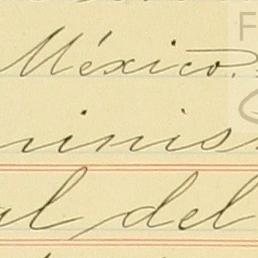 México.
minis
al del